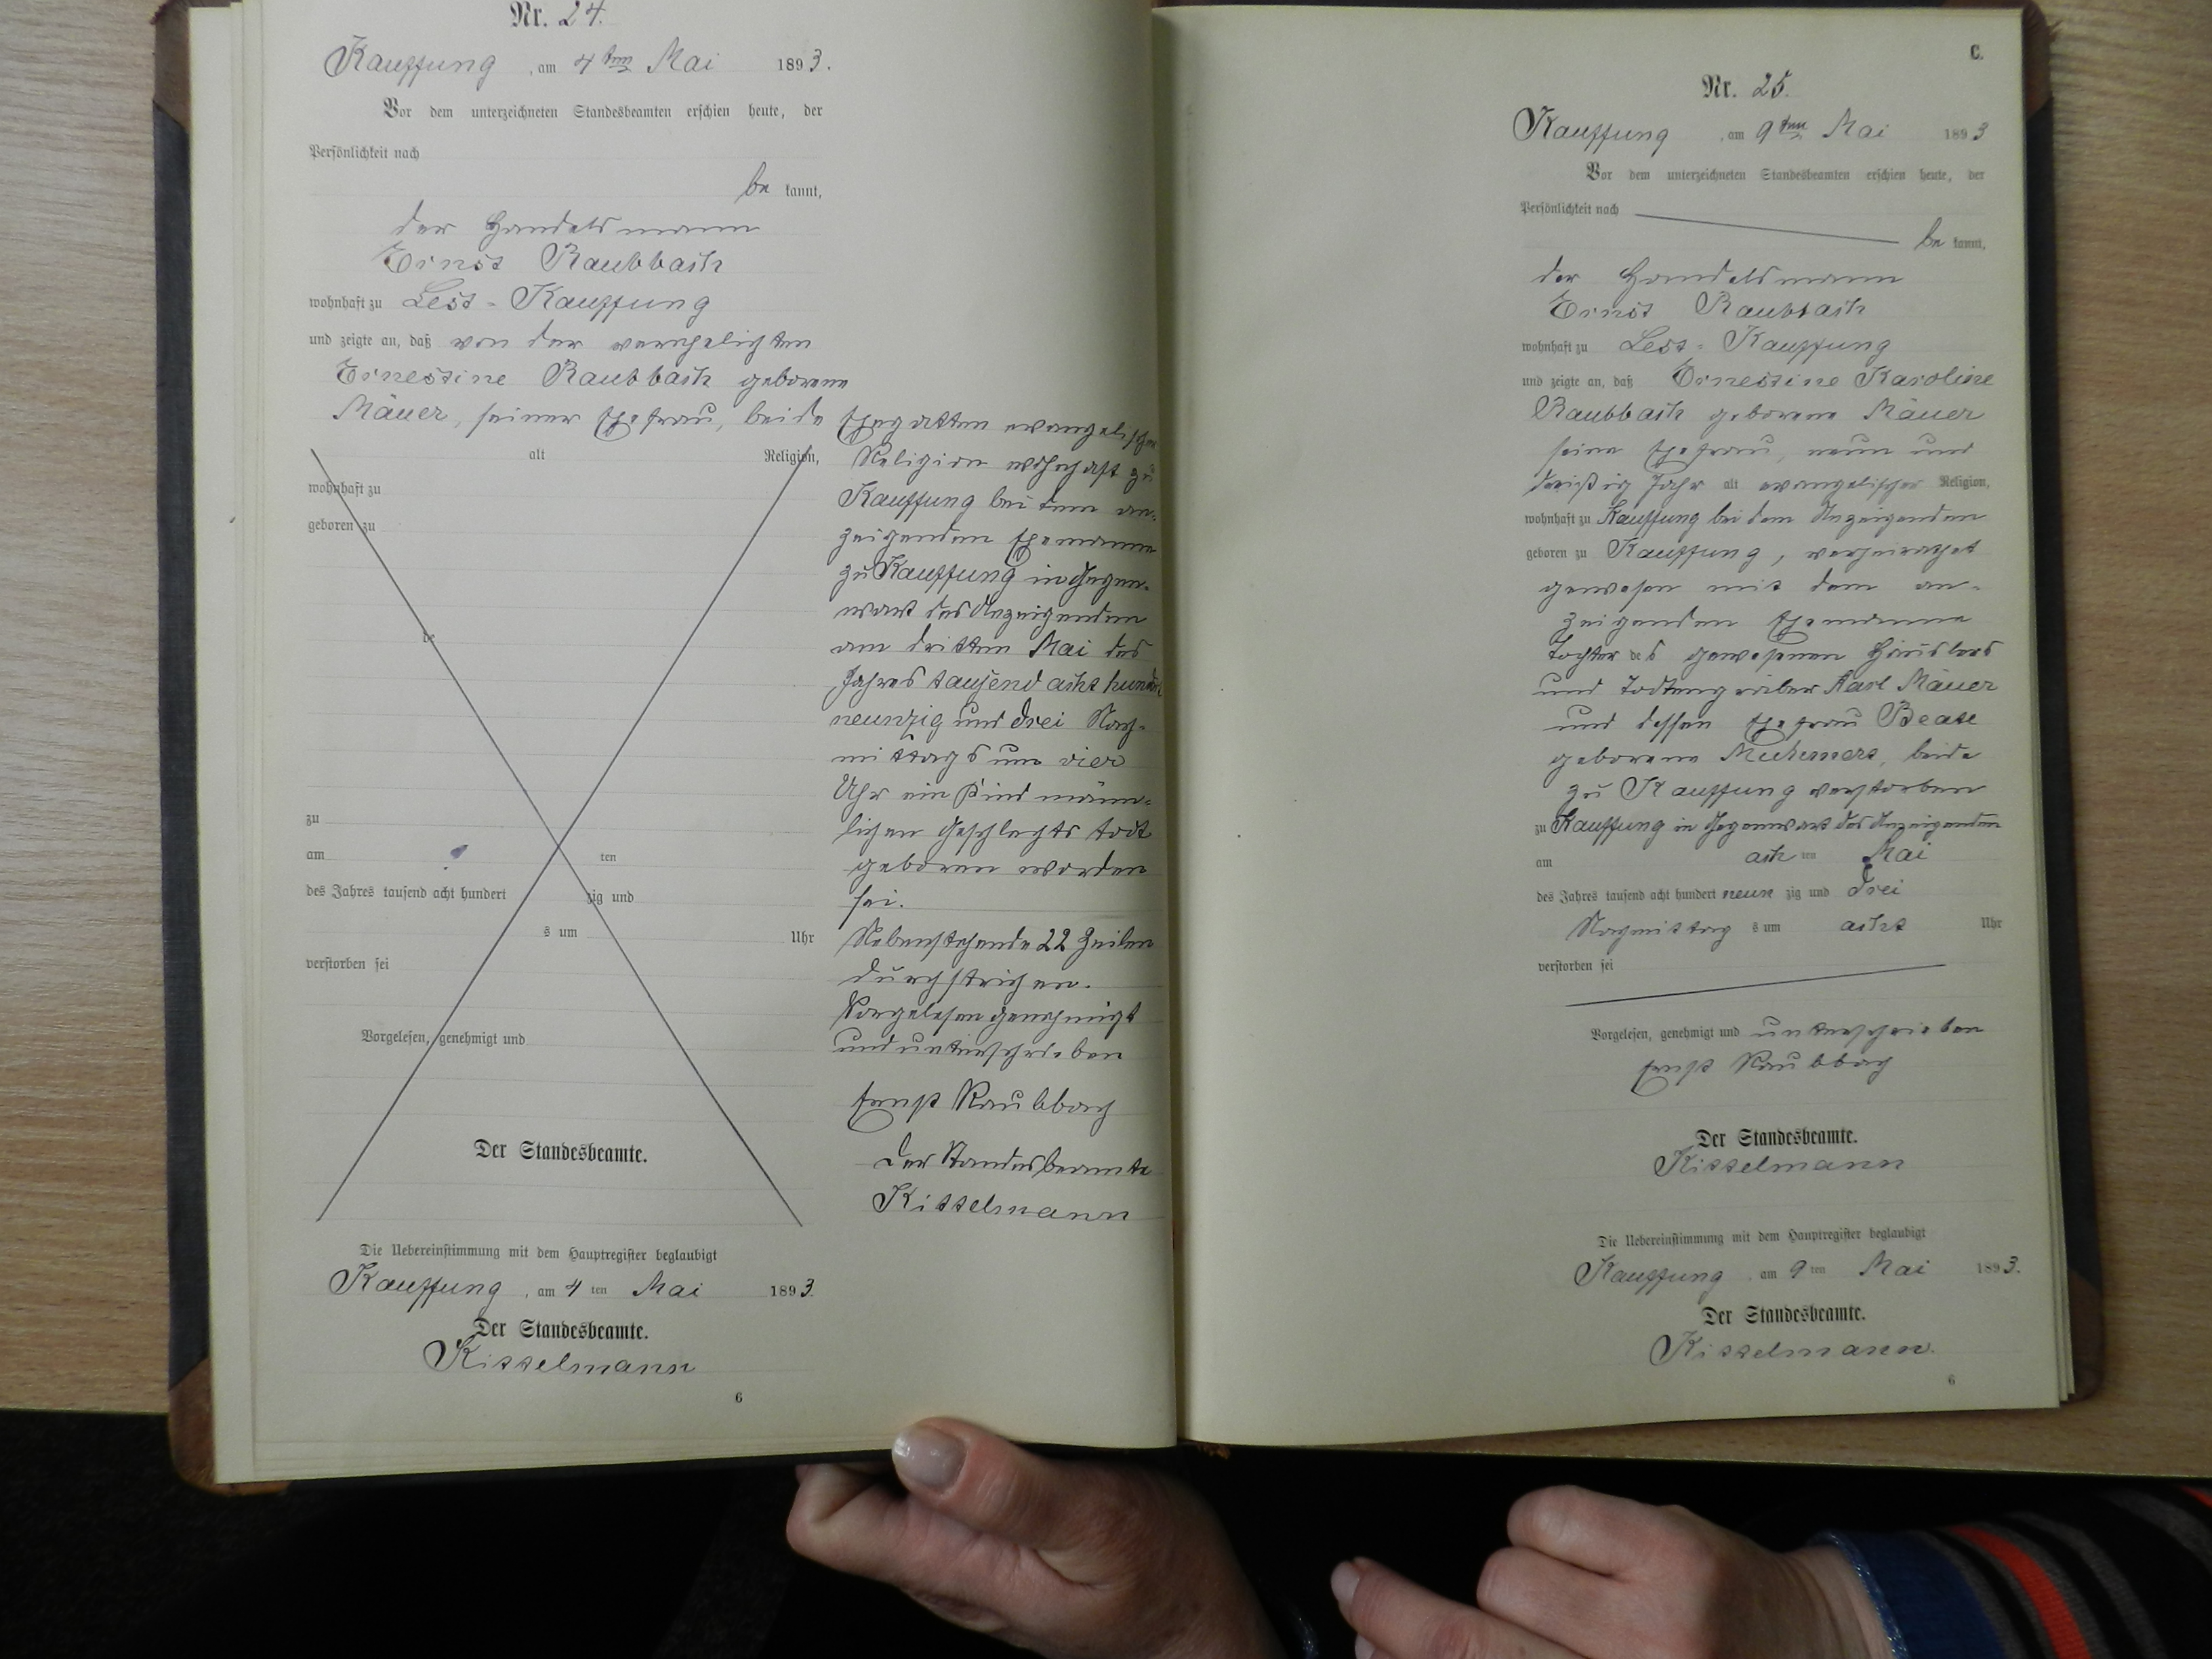 Nr. 24.
Kauffung, am 4ten Mai 1893.
Vor dem unterzeichneten Standesbeamten erschien heute, der
Persönlichkeit nach
be kannt,
der Handelsmann
Ernst Raubbach
wohnhaft zu Lest-Kauffung
und zeigte an, daß von der verehelichten
Ernestine Raubbach geborene
Mäuer, seiner Ehefrau, beide Ehegatten evangelischer
alt Religion,
wohnhaft zu
geboren zu
be
zu
am ten
des Jahres tausend acht hundert zig und
s um Uhr
verstorben sei
Vorgelesen, genehmigt und
Der Standesbeamte.
Religion wohnhaft zu
Kauffung bei dem an-
zeigenden Ehemanne
zu Kauffung in Gegen-
wart des Anzeigenden
am dritten Mai des
Jahres tausend acht hundert
neunzig und drei Nach-
mittags um vier
Uhr ein Kind männ-
lichen Geschlechts todt
geboren worden
sei.
Nebenstehende 22 Zeilen
durchstrichen.
Vorgelesen genehmigt
und unterschrieben
Ernst Raubbach
Der Standesbeamte
Kisselmann
Die Uebereinstimmung mit dem Hauptregister beglaubigt
Kauffung, am 4 ten Mai 1893.
Der Standesbeamte.
Kisselmann
6
C.
Nr. 25.
Kauffung, am 9ten Mai 1893
Vor dem unterzeichneten Standesbeamten erschien heute, der
Persönlichkeit nach
be kannt,
der Handelsmann
Ernst Raubbach
wohnhaft zu Lest-Kauffung
und zeigte an, daß Ernestine Karoline
Raubbach geborene Mäuer
seine Ehefrau, neun und
dreißig Jahr alt evangelischer Religion,
wohnhaft zu Kauffung bei dem Anzeigenden
geboren zu Kauffung, verheirathet
gewesen mit dem an-
zeigenden Ehemanne
Tochter des gewesenen Häuslers
und Todtengräber Karl Mäuer
und dessen Ehefrau Beate
geborene beide
zu Kauffung verstorben
zu Kauffung in Gegenwart des Anzeigenden
am acht ten Mai
des Jahres tausend acht hundert neun zig und drei
Nachmittag s um acht Uhr
verstorben sei
Vorgelesen, genehmigt und unterschrieben
Ernst Raubbach
Der Standesbeamte.
Kisselmann
Die Uebereinstimmung mit dem Hauptregister beglaubigt
Kauffung am 9 ten Mai 1893.
Der Standesbeamte.
Kisselmann.
6